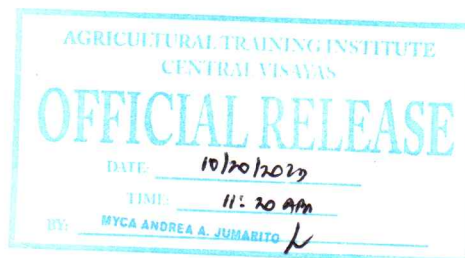 AGRICULTURAL TRAINING INSTITUTE
CENTRAL VISAYAS
OFFICIAL RELEASE
DATE:
TIME: 11:20 AM
BY: MYCA ANDREA A. JUMARITO